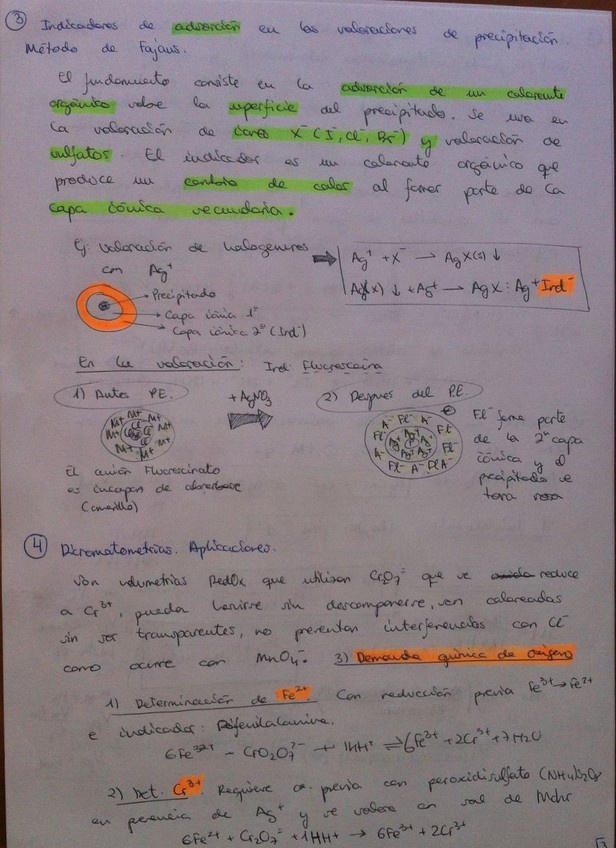 3 Indicadores de adsorción en las valoraciones de precipitación.
Método de Fajans.
El fundamento consiste en la adsorción de un colorante
orgánico sobre la superficie del precipitado. Se usa en
la valoración de iones X⁻ (I⁻, Cl⁻, Br⁻) y valoración de
sulfatos. El indicador es un colorante orgánico que
produce un cambio de color al formar parte de la
capa iónica secundaria.
Ej: valoración de halogenuros
con Ag⁺
Ag⁺ + X⁻ → AgX(s) ↓
AgX(s) ↓ + Ag⁺ → AgX : Ag⁺ Ind⁻
Precipitado
Capa iónica 1ª
Capa iónica 2ª (Ind⁻)
En la valoración: Ind: Fluoresceína
1) Antes P.E.
+ AgNO₃
2) Después del P.E.
El anión Fluoresceinato
es incapaz de adsorberse
(amarillo)
Fl⁻ forma parte
de la 2ª capa
iónica y el
precipitado se
torna rosa
4 Dicromatometrías. Aplicaciones.
Son volumetrías Redox que utilizan Cr₂O₇⁼ que se reduce
a Cr³⁺, pueden hervirse sin descomponerse, son coloreadas
sin ser transparentes, no presentan interferencias con Cl⁻
como ocurre con MnO₄⁻. 3) Demanda química de oxígeno
1) Determinación de Fe²⁺ Con reducción previa Fe³⁺→Fe²⁺
e indicador: Difenilalanina.
6Fe²⁺ 14H⁺ ⇌ 6Fe³⁺ + 2Cr³⁺ + 7H₂O
2) Det. Cr³⁺. Requiere ox. previa con peroxidisulfato (NH₄)₂S₂O₈
en presencia de Ag⁺ y se valora con sal de Mohr
6Fe²⁺ + Cr₂O₇⁼ + 14H+ → 6Fe³⁺ + 2Cr³⁺